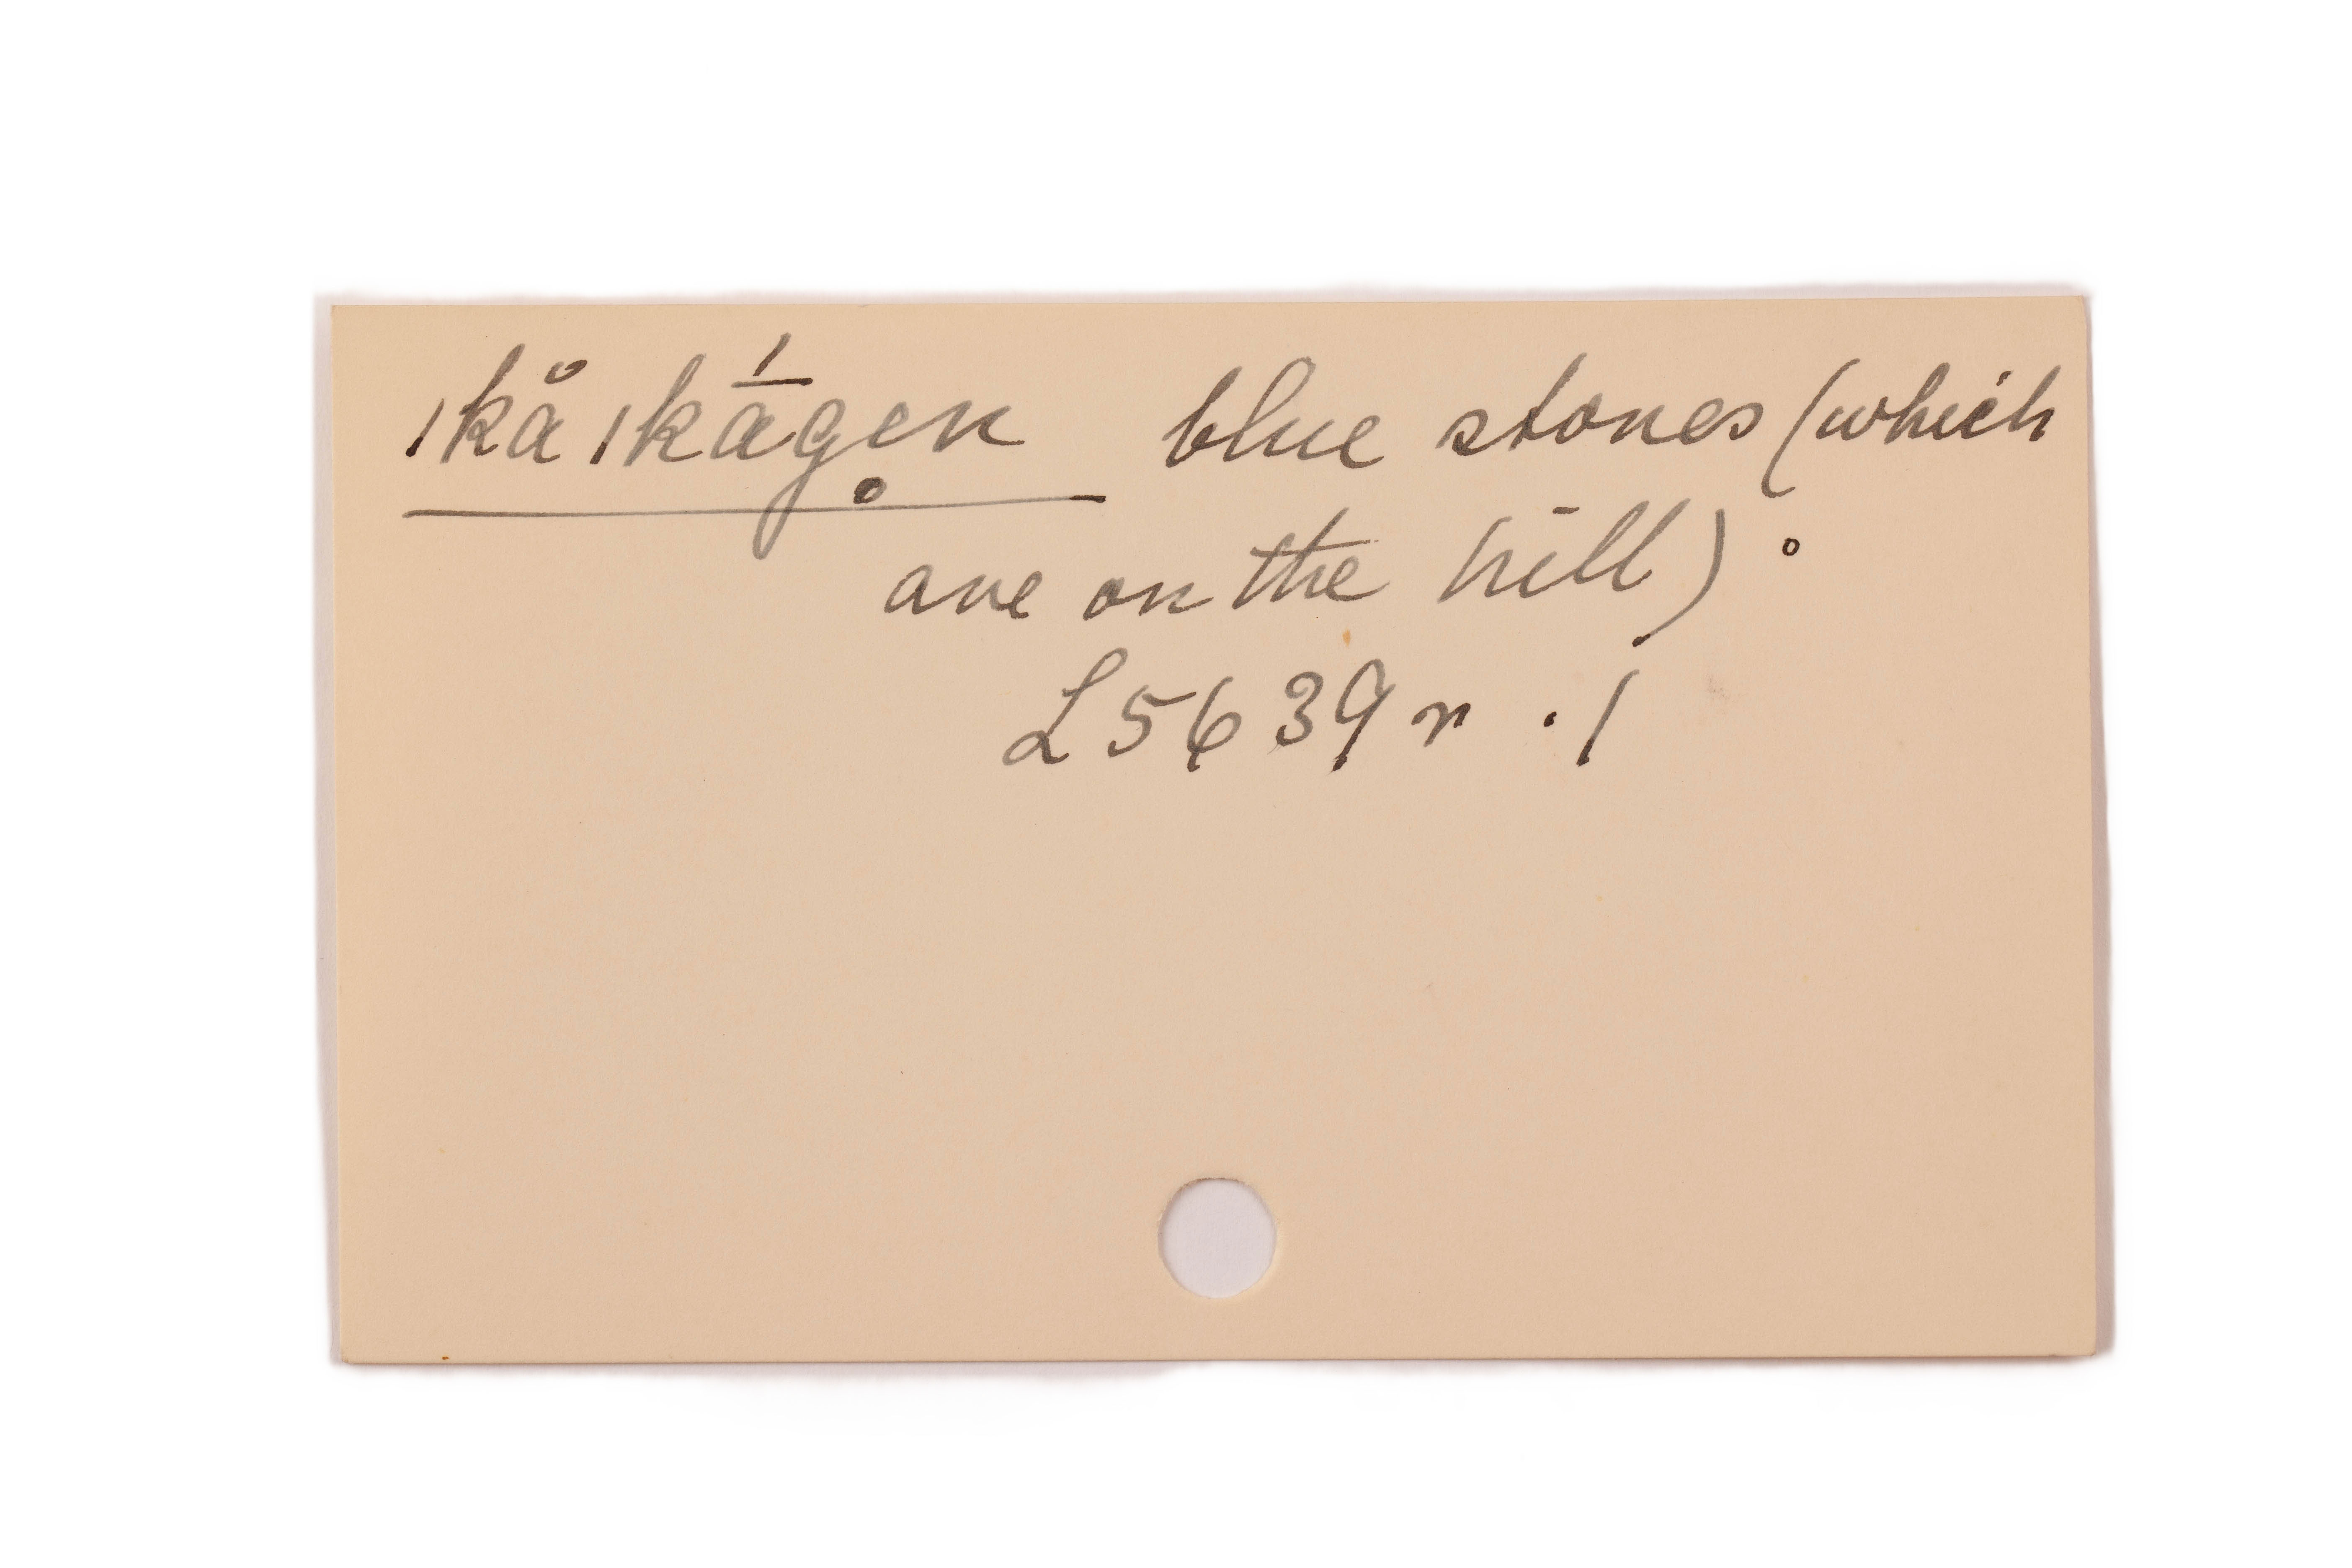 ǀkå ǀkā́ge̥n blue stones (which
are on the hill).
L5639 r . /